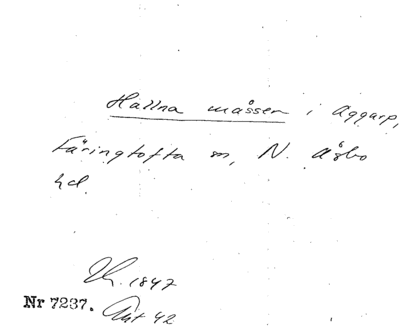 Hallna måssen i Aggarp,
Färingtofta sn, N. Åsbo
hd.
Lh. 1847
Nr 7237. Akt 42